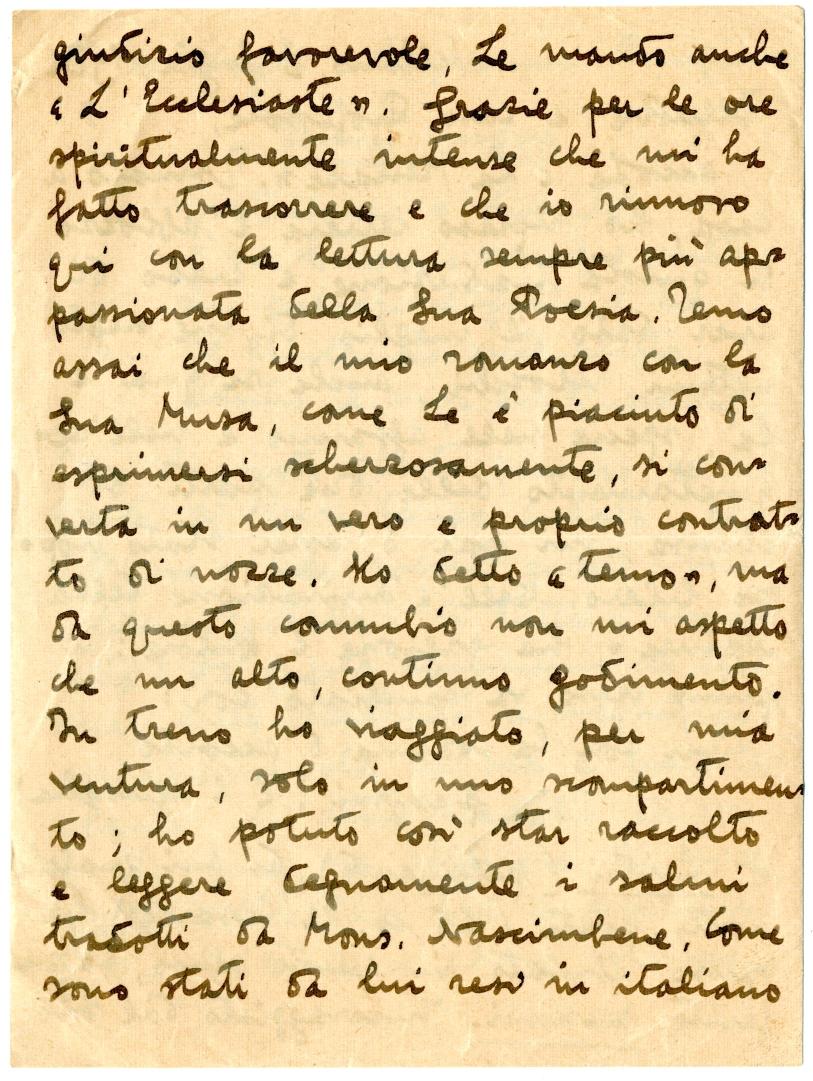 giudizio favorevole, Le mando anche
« L'Ecclesiaste ». Grazie per le ore
spiritualmente intense che mi ha
fatto trascorrere e che io rinnovo
qui con la lettura sempre più ap-
passionata della Sua Poesia. Temo
assai che il mio romanzo con la
Sua Musa, come Le è piaciuto di
esprimersi scherzosamente, si con-
verta in un vero e proprio contrat-
to di nozze. Ho detto « temo », ma
da questo connubio non mi aspetto
che un alto, continuo godimento.
In treno ho viaggiato, per mia
ventura, solo in uno scompartimen-
to; ho potuto così star raccolto
e leggere degnamente i salmi
tradotti da Mons. Nascimbene. Come
sono stati da lui resi in italiano